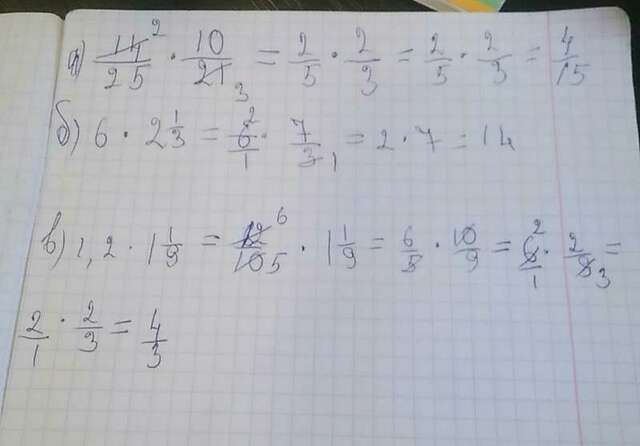 а) 14/25 2 · 10/21 3 = 2/5 · 2/3 = 2/5 · 2/3 = 4/15
б) 6 · 2 1/3 = 6/1 2 · 7/3 1 = 2 · 7 = 14
в) 1,2 · 1 1/9 = 12/10 6 5 · 1 1/9 = 6/5 · 10/9 = 6/1 2 · 2/9 3 =
2/1 · 2/3 = 4/3